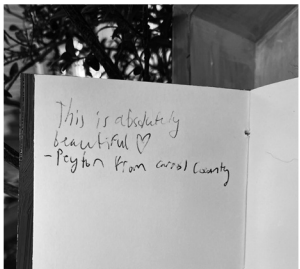 This is absolutely
beautiful ♡
-Peyton from Carrol County